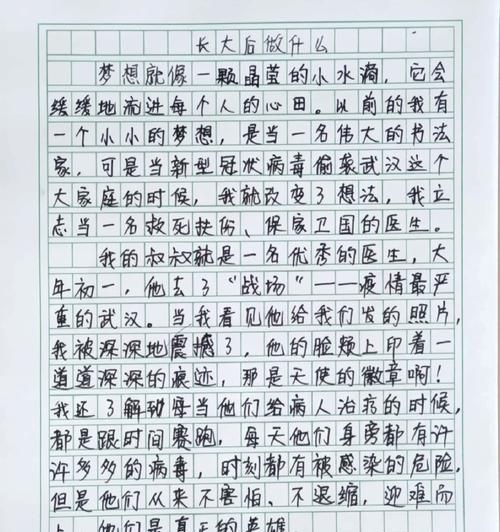 长大后做什么
梦想就像一颗晶莹的小水滴，它会
缓缓地流进每个人的心田。以前的我有
一个小小的梦想，是当一名伟大的书法
家，可是当新型冠状病毒偷袭武汉这个
大家庭的时候，我就改变了想法，我立
志当一名救死扶伤、保家卫国的医生。
我的叔叔就是一名优秀的医生，大
年初一，他去了“战场”——疫情最严
重的武汉。当我看见他给我们发的照片，
我被深深地震撼了，他的脸颊上印着一
道道深深的痕迹，那是天使的徽章啊！
我还了解到每当他们给病人治疗的时候，
都是跟时间赛跑，每天他们身旁都有许
许多多的病毒，时刻都有被感染的危险，
但是他们从来不害怕、不退缩，迎难而
上，他们是真正的英雄